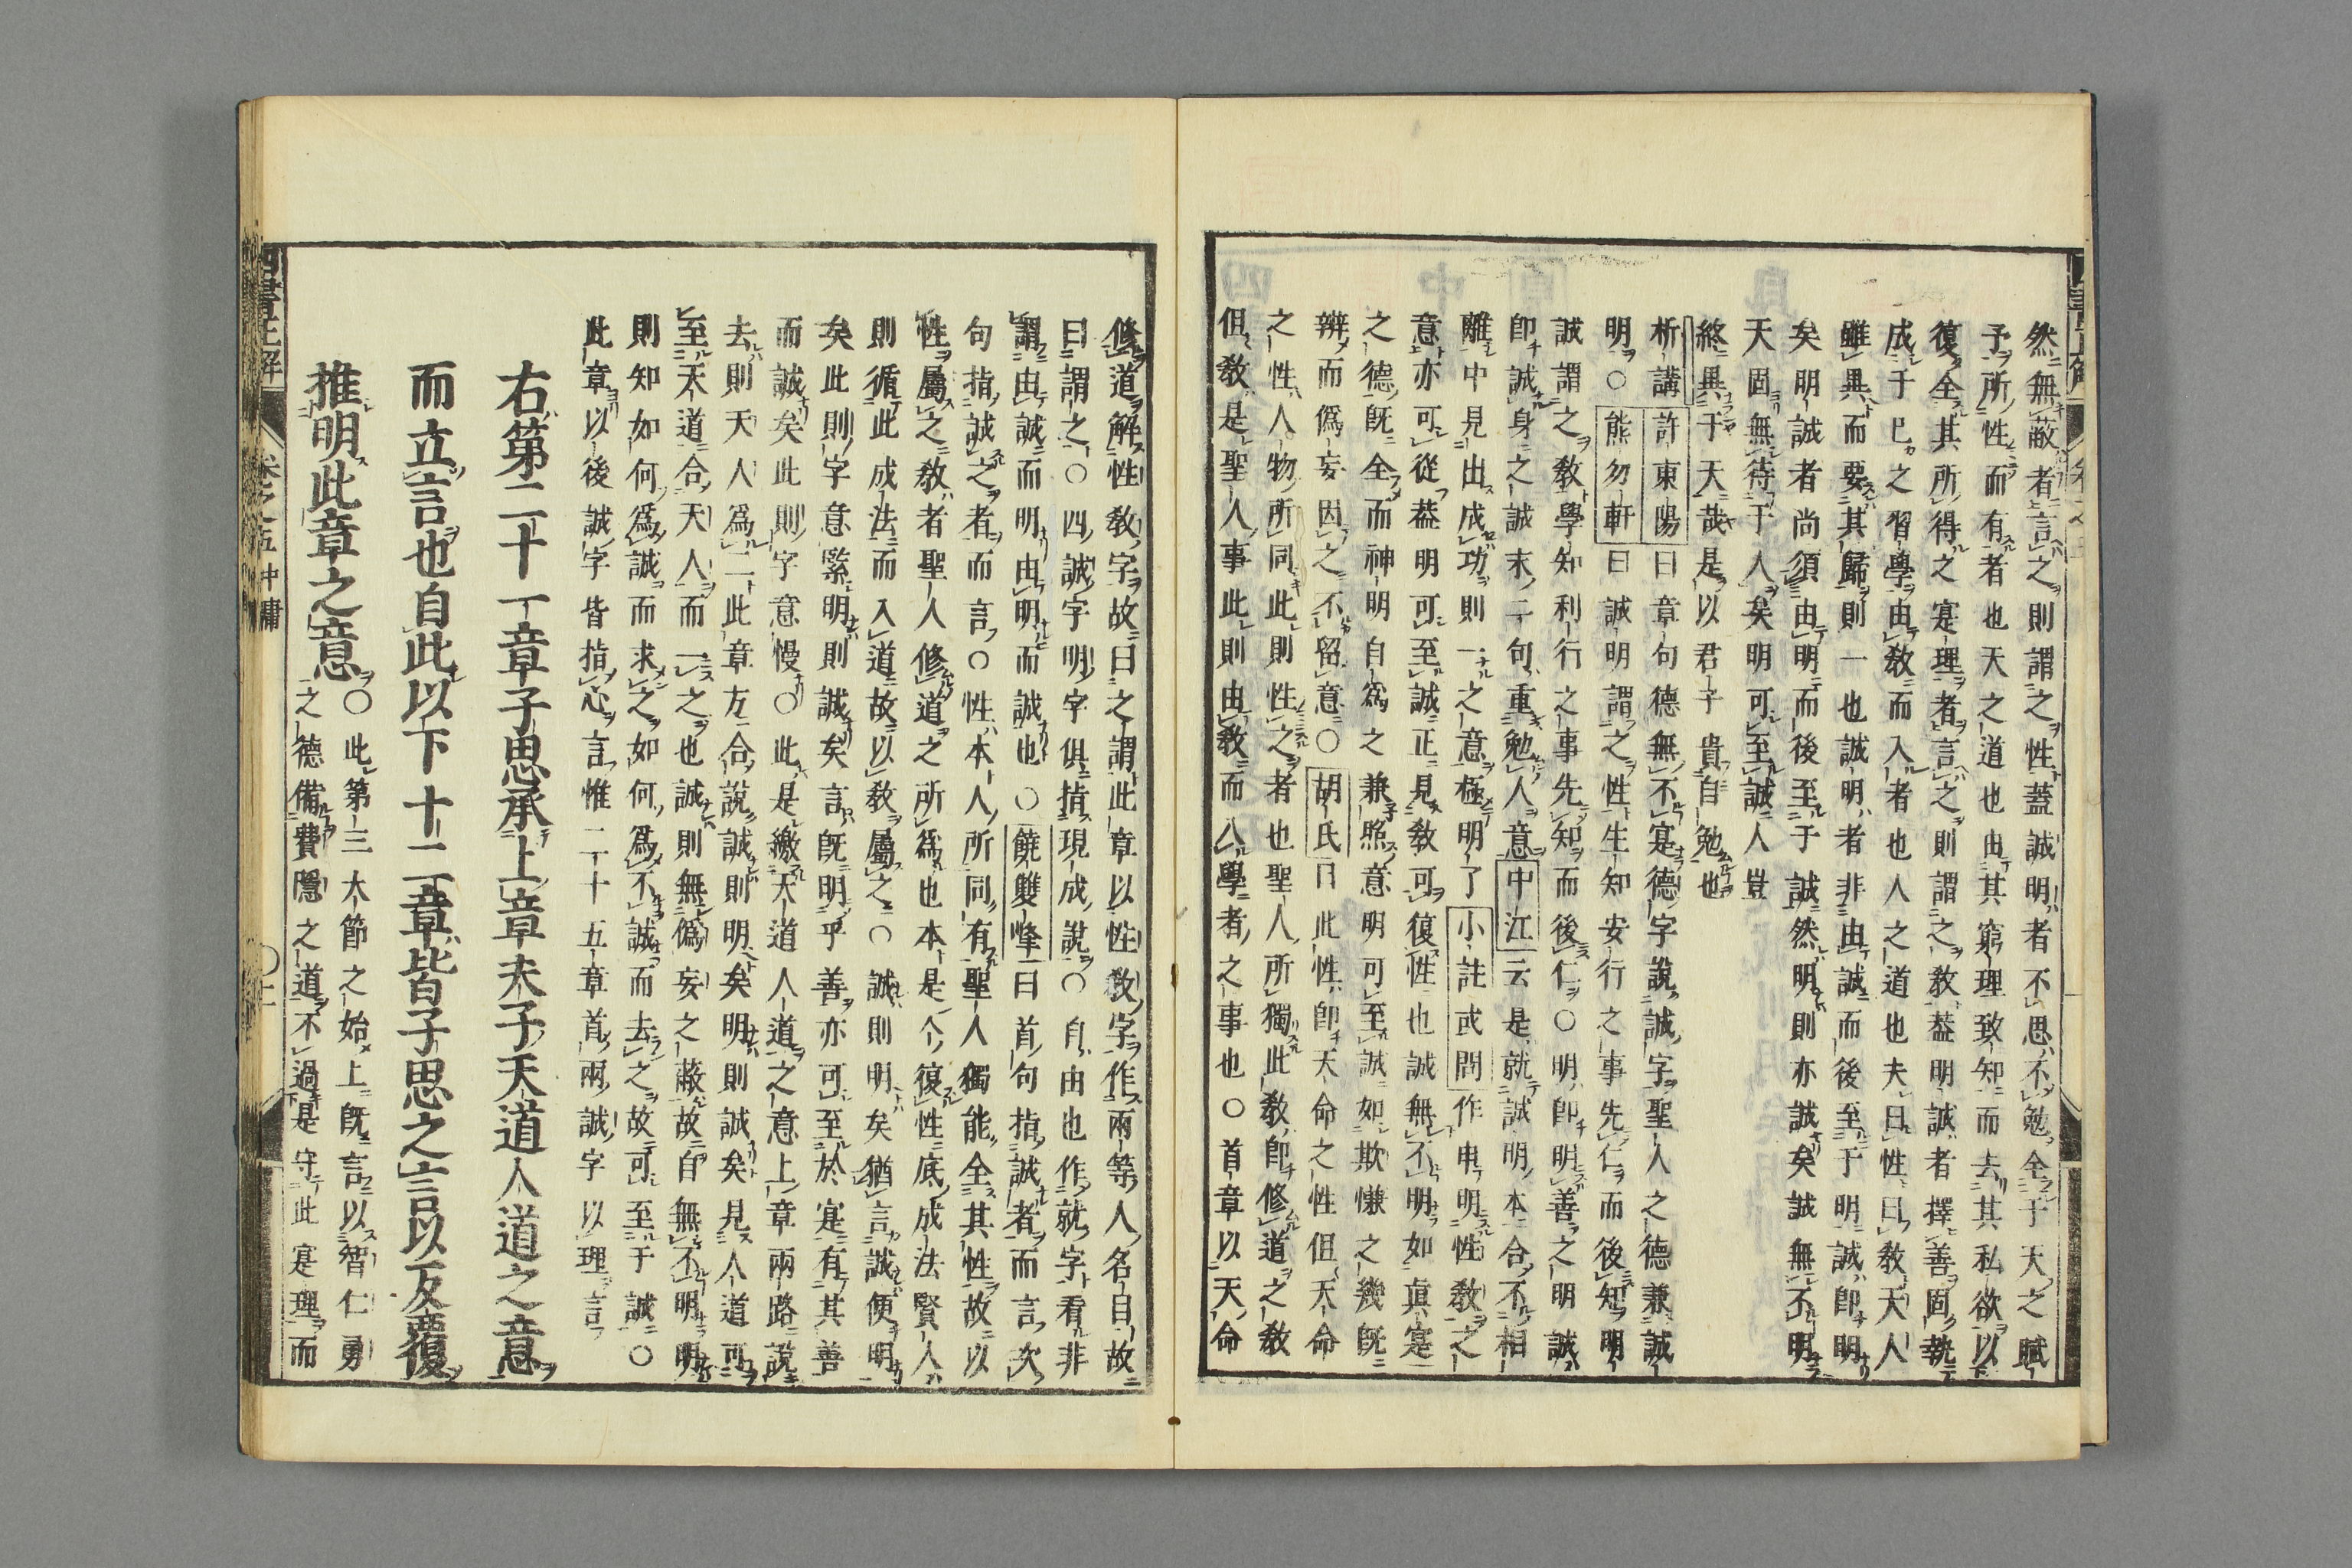 然無蔽者言之則謂之性蓋誠明者不思不勉全于天之賦
予所性而有者也天之道也由其窮理致知而去其私欲以
復全其所得之寔理者言之則謂之教蓋明誠者擇善固執
成于已之習學由教而入者也人之道也夫曰性曰教天人
雖異而要其歸則一也誠明者非由誠而後至于明誠即明
矣明誠者尚須由明而後至于誠然明則亦誠矣誠無不明
天固無待于人矣明可至誠人豈
終異于天哉是以君子貴自勉也
析講許東陽曰章句德無不寔德字說誠字聖人之德兼誠
明○熊勿軒曰誠明謂之性生知安行之事先仁而後知明
誠謂之教學知利行之事先知而後仁○明即明善之明誠
即誠身之誠末二句重勉人意中江云是就誠明本合不相
離中見出成功則一之意極明了小註或問作申明性教之
意亦可從蓋明可至誠正見教可復性也誠無不明如真寔
之德既全而神明自為之兼照意明可至誠如欺慊之幾既
辨而偽妄因之不留意○胡氏曰此性即天命之性但天命
之性人物所同此則性之者也聖人所獨此教即修道之教
但教是聖人事此則由教而入學者之事也○首章以天命
修道解性教字故曰之謂此章以性教字作兩等人名目故
曰謂之○四誠字明字俱指現成說○自由也作就字看非
謂由誠而明由明而誠也○饒雙峰曰首句指誠者而言次
句指誠之者而言○性本人所同有聖人獨能全其性故以
性屬之教者聖人修道之所為也本是个復性底成法賢人
則循此成法而入道故以教屬之○誠則明矣猶言誠便明
矣此則字意緊明則誠矣言既明乎善亦可至於寔有其善
而誠矣此則字意慢○此是繳天道人道之意上章兩路說
去則天人為二此章方合說誠則明矣明則誠矣見人道可
至天道合天人而一之也誠則無偽妄之蔽故自無不明明
則知如何為誠而求之如何為不誠而去之故可至于誠○
此章以後誠字皆指心言惟二十五章首兩誠字以理言
右第二十一章子思承上章夫子天道人道之意
而立言也自此以下十二章皆子思之言以反覆
推明此章之意○此第三大節之始上既言以智仁勇
之德備費隱之道不過是守此寔理而
四書正解
卷之五中庸